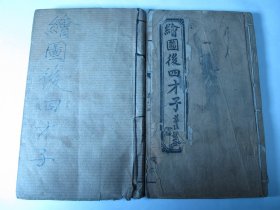 繪圖後四才子
繪圖後四才子